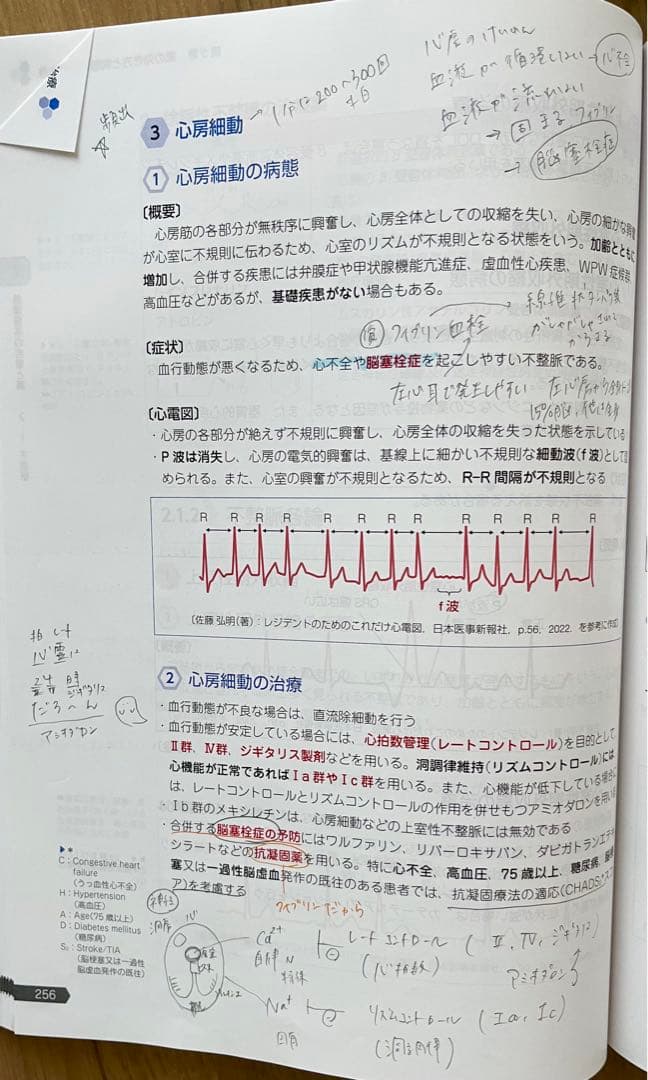 治療
頻出
1分に200〜300回
心房のけいれん
血液が循環しない → 心不全
血液が流れない
→ 固まる フィブリン
→ 脳塞栓症
3 心房細動
1 心房細動の病態
〔概要〕
心房筋の各部分が無秩序に興奮し、心房全体としての収縮を失い、心房の細かな興奮
が心室に不規則に伝わるため、心室のリズムが不規則となる状態をいう。加齢とともに
増加し、合併する疾患には弁膜症や甲状腺機能亢進症、虚血性心疾患、WPW症候群
高血圧などがあるが、基礎疾患がない場合もある。
フィブリン血栓
〔症状〕
血行動態が悪くなるため、心不全や脳塞栓症を起こしやすい不整脈である。
左心耳で発生しやすい
〔心電図〕
・心房の各部分が絶えず不規則に興奮し、心房全体の収縮を失った状態を示している
・P波は消失し、心房の電気的興奮は、基線上に細かい不規則な細動波(f波)として
められる。また、心室の興奮が不規則となるため、R−R間隔が不規則となる
R R R R R R R R R R R R R
f波
〔佐藤 弘明(著):レジデントのためのこれだけ心電図. 日本医事新報社, p.56, 2022. を参考に作成
2 心房細動の治療
・血行動態が不良な場合は、直流除細動を行う
・血行動態が安定している場合には、心拍数管理(レートコントロール)を目的として
Ⅱ群、Ⅳ群、ジギタリス製剤などを用いる。洞調律維持(リズムコントロール)には
心機能が正常であればⅠa群やⅠc群を用いる。また、心機能が低下している場合
は、レートコントロールとリズムコントロールの作用を併せもつアミオダロンを用い
・Ⅰb群のメキシレチンは、心房細動などの上室性不整脈には無効である
・合併する脳塞栓症の予防にはワルファリン、リバーロキサバン、ダビガトランエテキ
シラートなどの抗凝固薬を用いる。特に心不全、高血圧、75歳以上、糖尿病、脳梗
塞又は一過性脳虚血発作の既往のある患者では、抗凝固療法の適応(CHADS₂スコ
ア)を考慮する
アミオダロン
*
C:Congestive heart
failure
(うっ血性心不全)
H:Hypertension
(高血圧)
A:Age(75歳以上)
D:Diabetes mellitus
(糖尿病)
S₂:Stroke/TIA
(脳梗塞又は一過性
脳虚血発作の既往)
フィブリンだから
Ca²⁺
レートコントロール (Ⅱ、Ⅳ、ジギタリス)
(心拍数)
アミオダロン
Na⁺
リズムコントロール (Ⅰa, Ⅰc)
(洞調律)
256